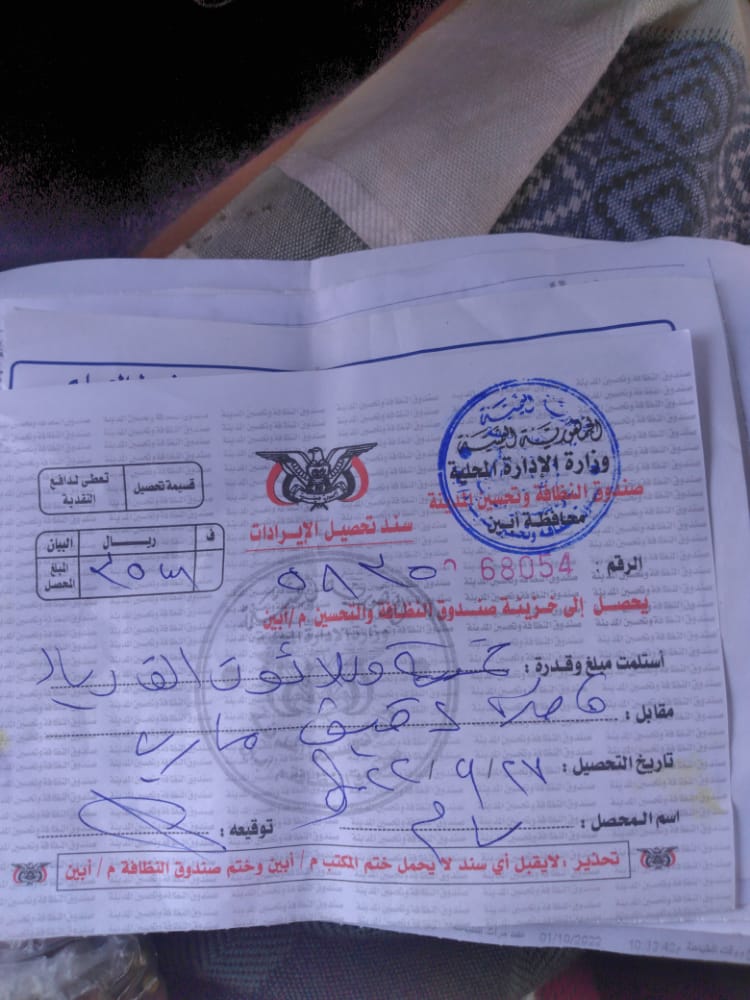 الجمهورية اليمنية
وزارة الإدارة المحلية
صندوق النظافة وتحسين المدينة
محافظة أبين
سند تحصيل الإيرادات
قسيمة تحصيل
تعطى لدافع النقدية
البيان ريال ف
المبلغ المحصل
الرقم : 68054
يحصل إلى خزينة صندوق النظافة والتحسين م/أبين
أستلمت مبلغ وقدرة : خمسة وثلاثون الف ريال
مقابل : دقيق مارب
تاريخ التحصيل : ٢٧/٩/٢٠٢٢
اسم المحصل :
توقيعه :
تحذير : لايقبل أي سند لا يحمل ختم المكتب م/أبين وختم صندوق النظافة م/أبين
01/10/2022